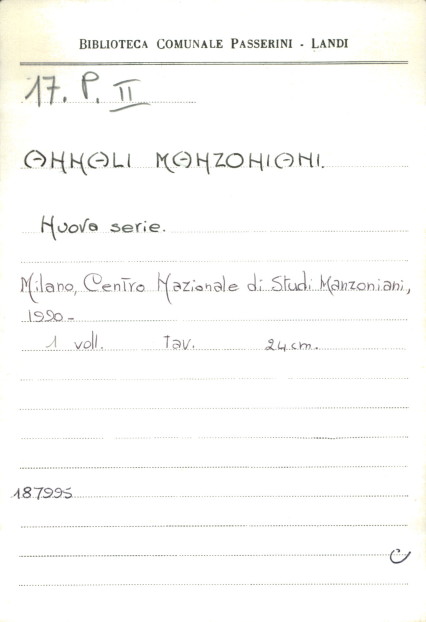 BIBLIOTECA COMUNALE PASSERINI - LANDI
17. P. II
ANNALI MANZONIANI.
Nuova serie.
Milano, Centro Nazionale di Studi Manzoniani,
1990-
1 voll. Tav. 24 cm.
187995
C